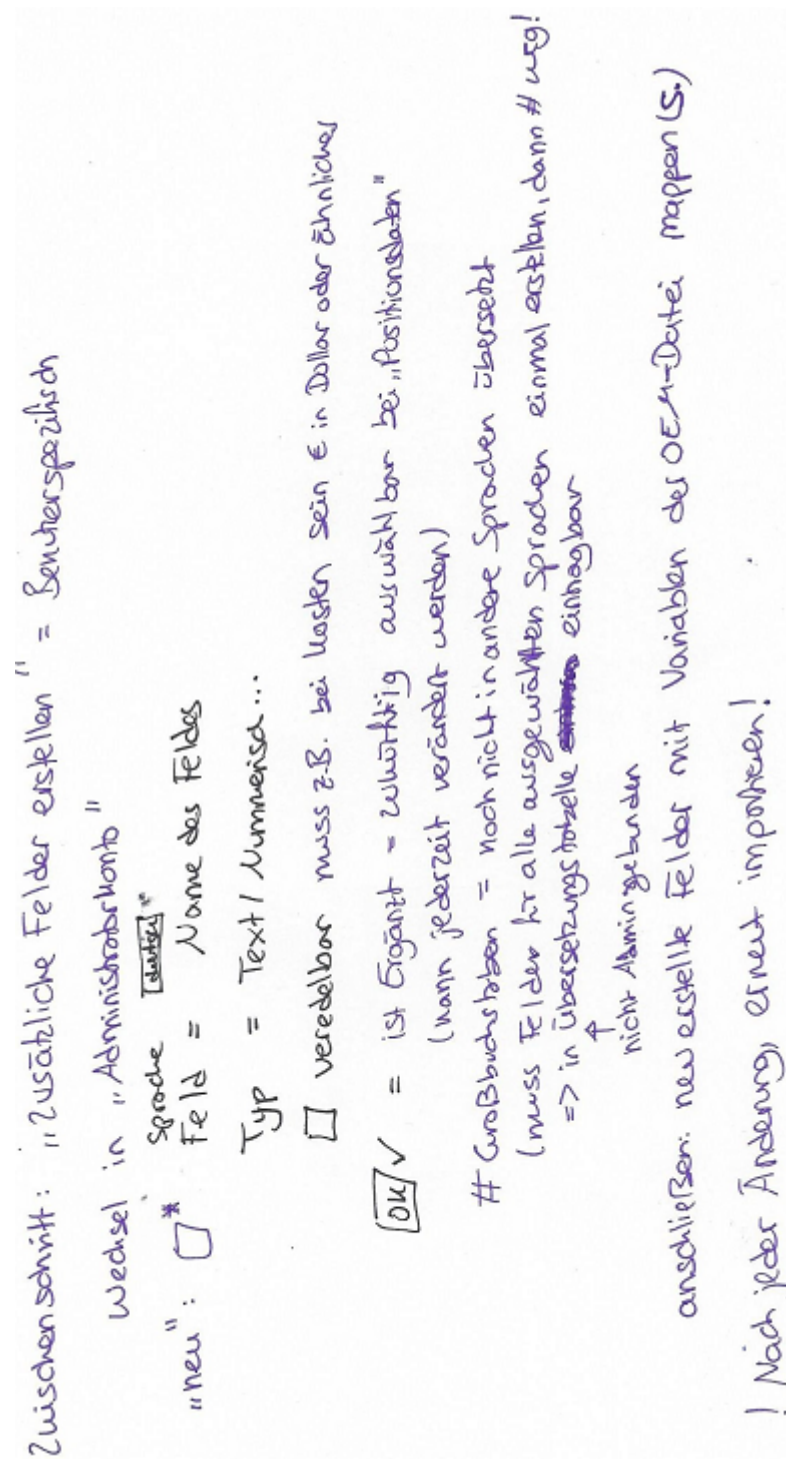 Zwischenschritt: „Zusätzliche Felder erstellen" = Benutzerspezifisch
Wechsel in „Administratorkonto"
Sprache deutsch
"neu": Feld = Name des Feldes
Typ = Text / Nummerisch...
☐ veredelbar muss z.B. bei Kosten sein € in Dollar oder ähnliches
OK ✓ = ist Ergänzt = zukünftig auswählbar bei „Positionsdaten"
(kann jederzeit verändert werden)
# Großbuchstaben = noch nicht in andere Sprachen übersetzt
(muss Felder für alle ausgewählten Sprachen einmal erstellen, dann # weg!
=> in Übersetzungstabelle eintragbar
↑
nicht Admingebunden
anschließen: neu erstellte Felder mit Variablen der OEM-Datei mappen (S.)
! Nach jeder Änderung, erneut importieren!